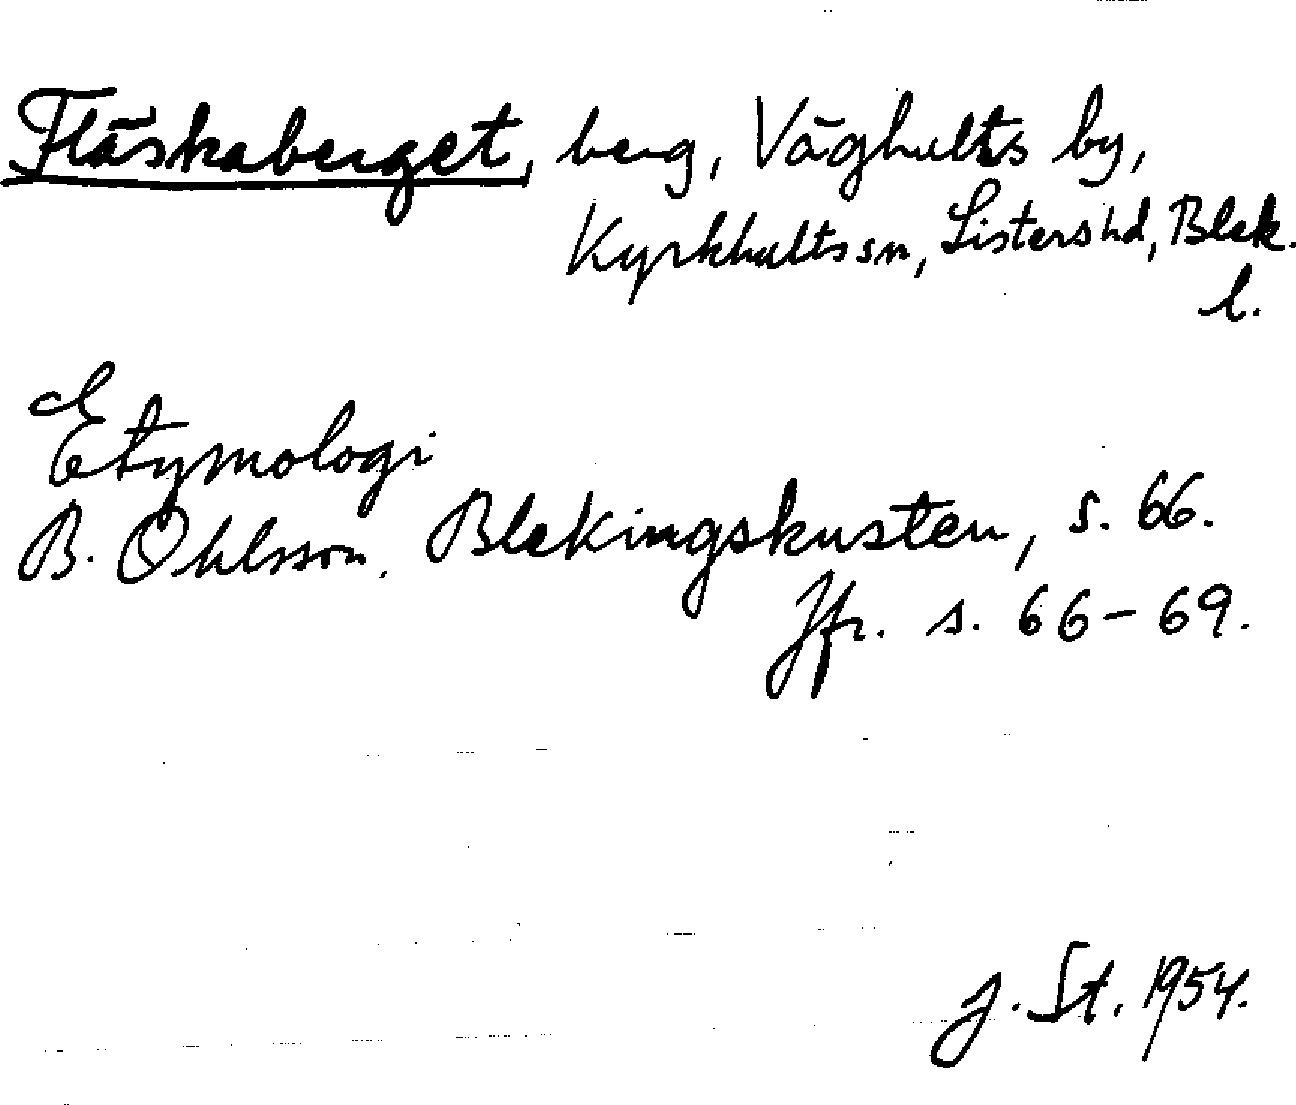 Fläskaberget, berg, Våghults by,
Kyrkhults sn, Listers hd, Blek.
l.
Etymologi
B. Ohlsson, Blekingskusten, s. 66.
Jfr. s. 66-69.
J. St. 1954.